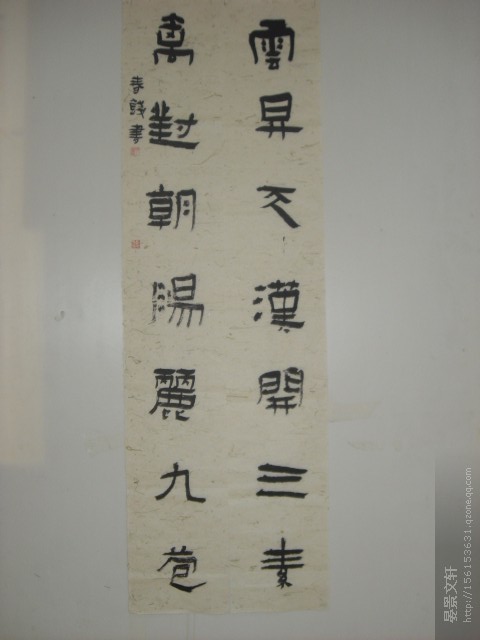 雲昇天漢開三素
高對朝陽麗九苞
春 書
晏景文轩
http://156153631.qzone.qq.com